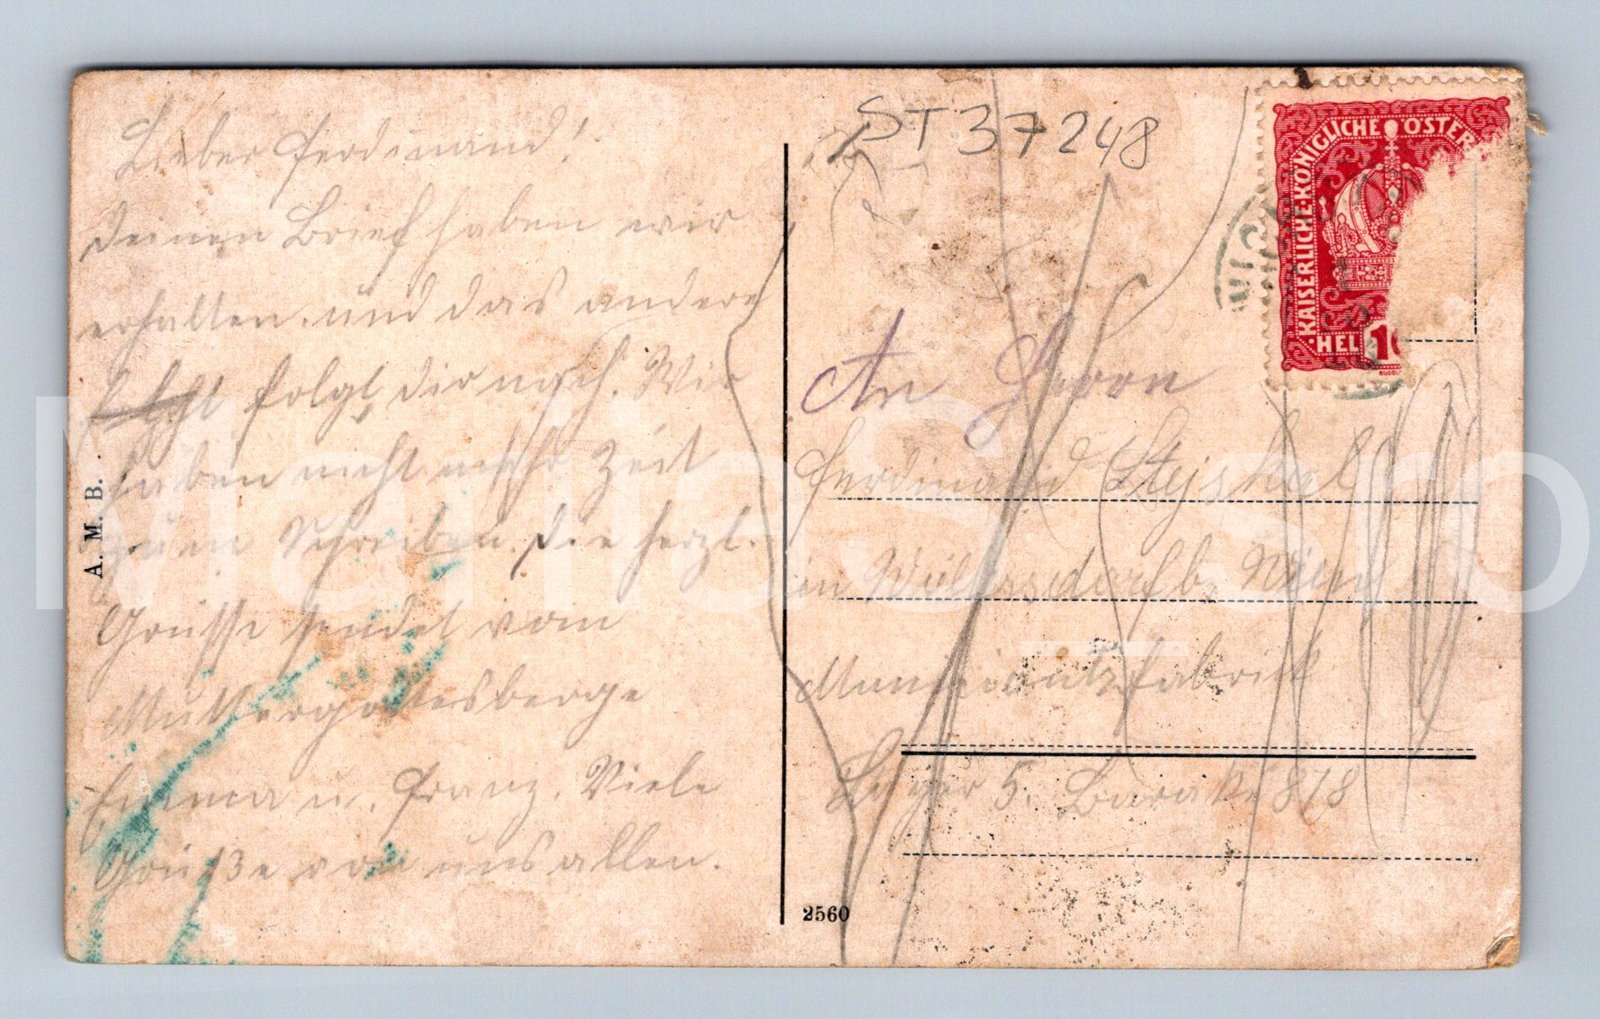 Lieber Ferdinand!
Deinen Brief haben wir
erhalten. und das andere
folgt dir nach. Wir
haben nicht mehr Zeit
zum Schreiben. Die herzl.
Grüsse sendet vom
Muttergottesberge
Emma u. Franz. Viele
Grüße von uns allen.
A. M. B.
ST 37248
KAISERLICHE KÖNIGLICHE ÖSTER
HEL 1
An Herrn
Ferdinand Stejskal
in Wöllersdorf b. Wien
Munitionsfabrik
Lager 5. Barake 818
2560
MarlieS_sno